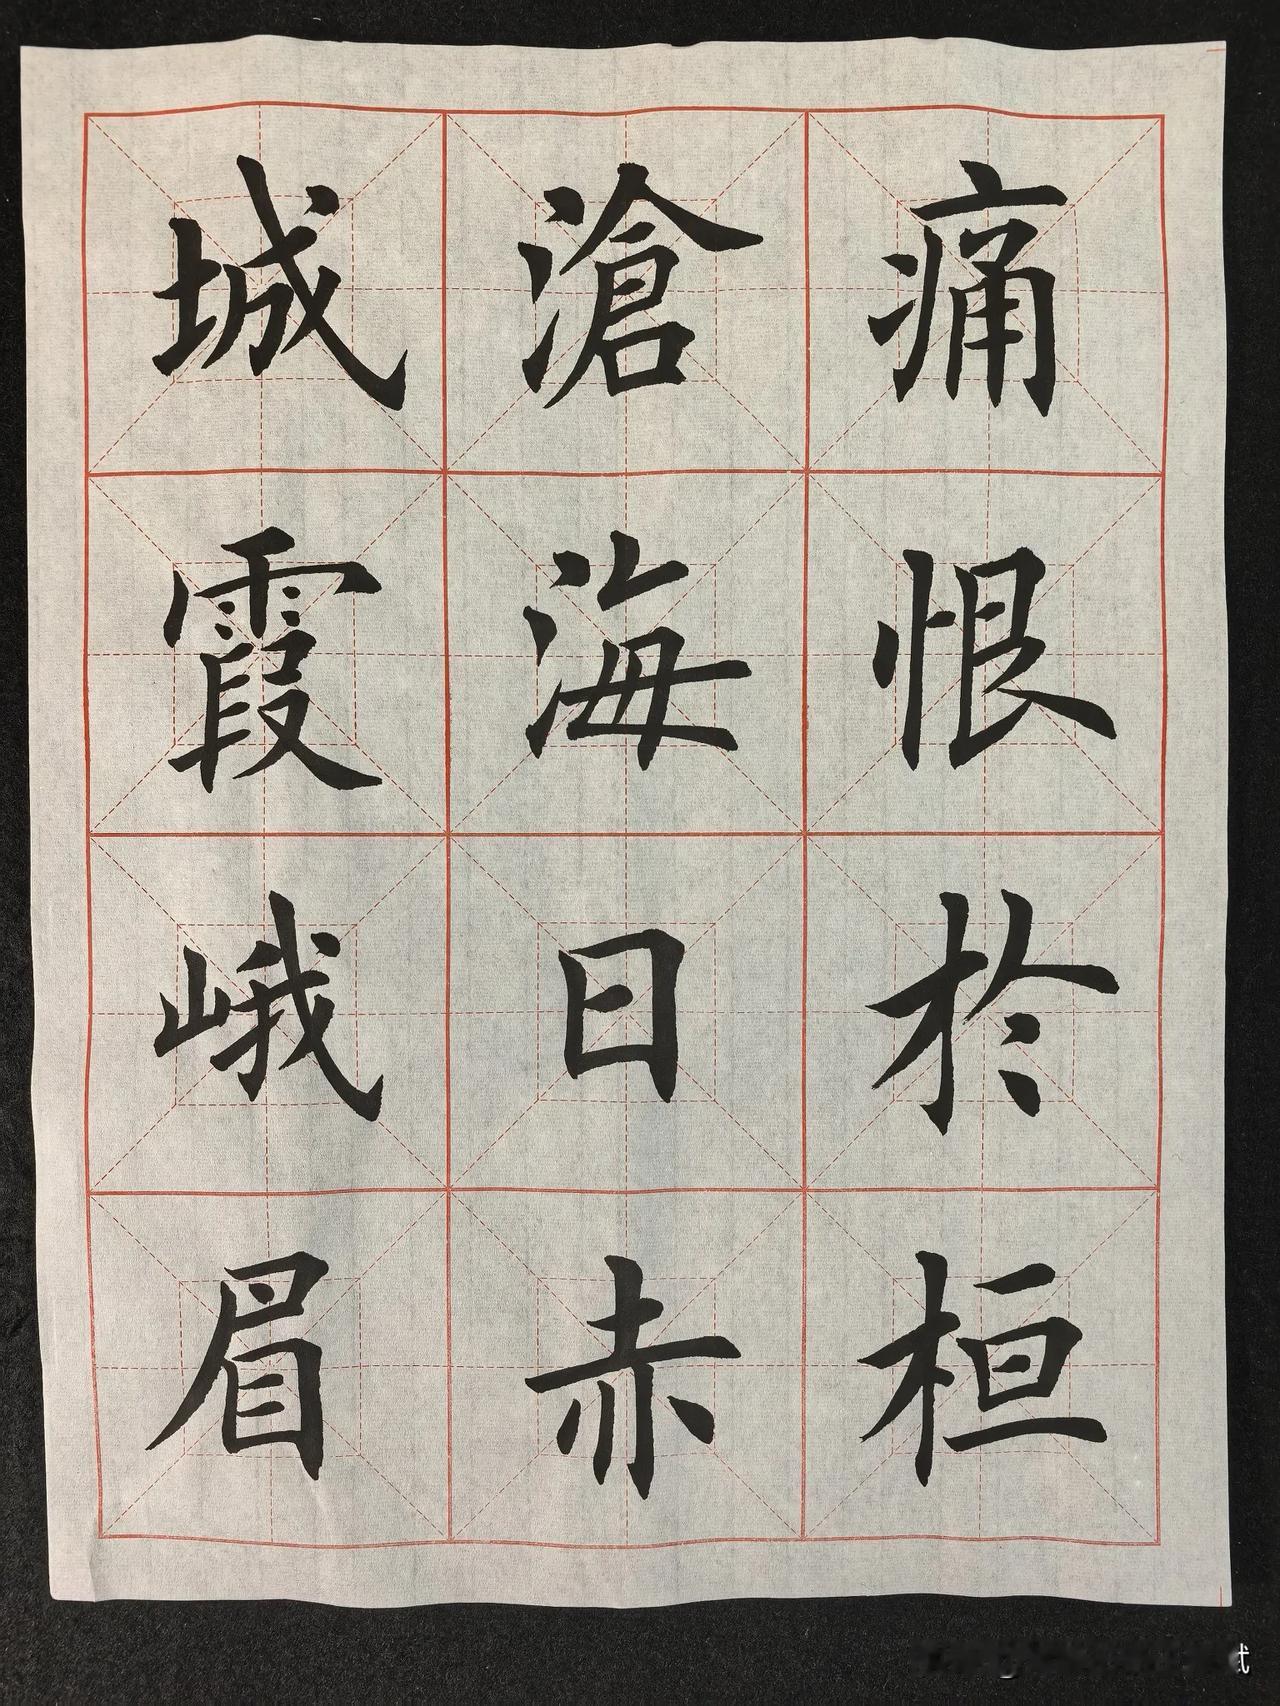 痛恨於桓
滄海日赤
城霞峨眉